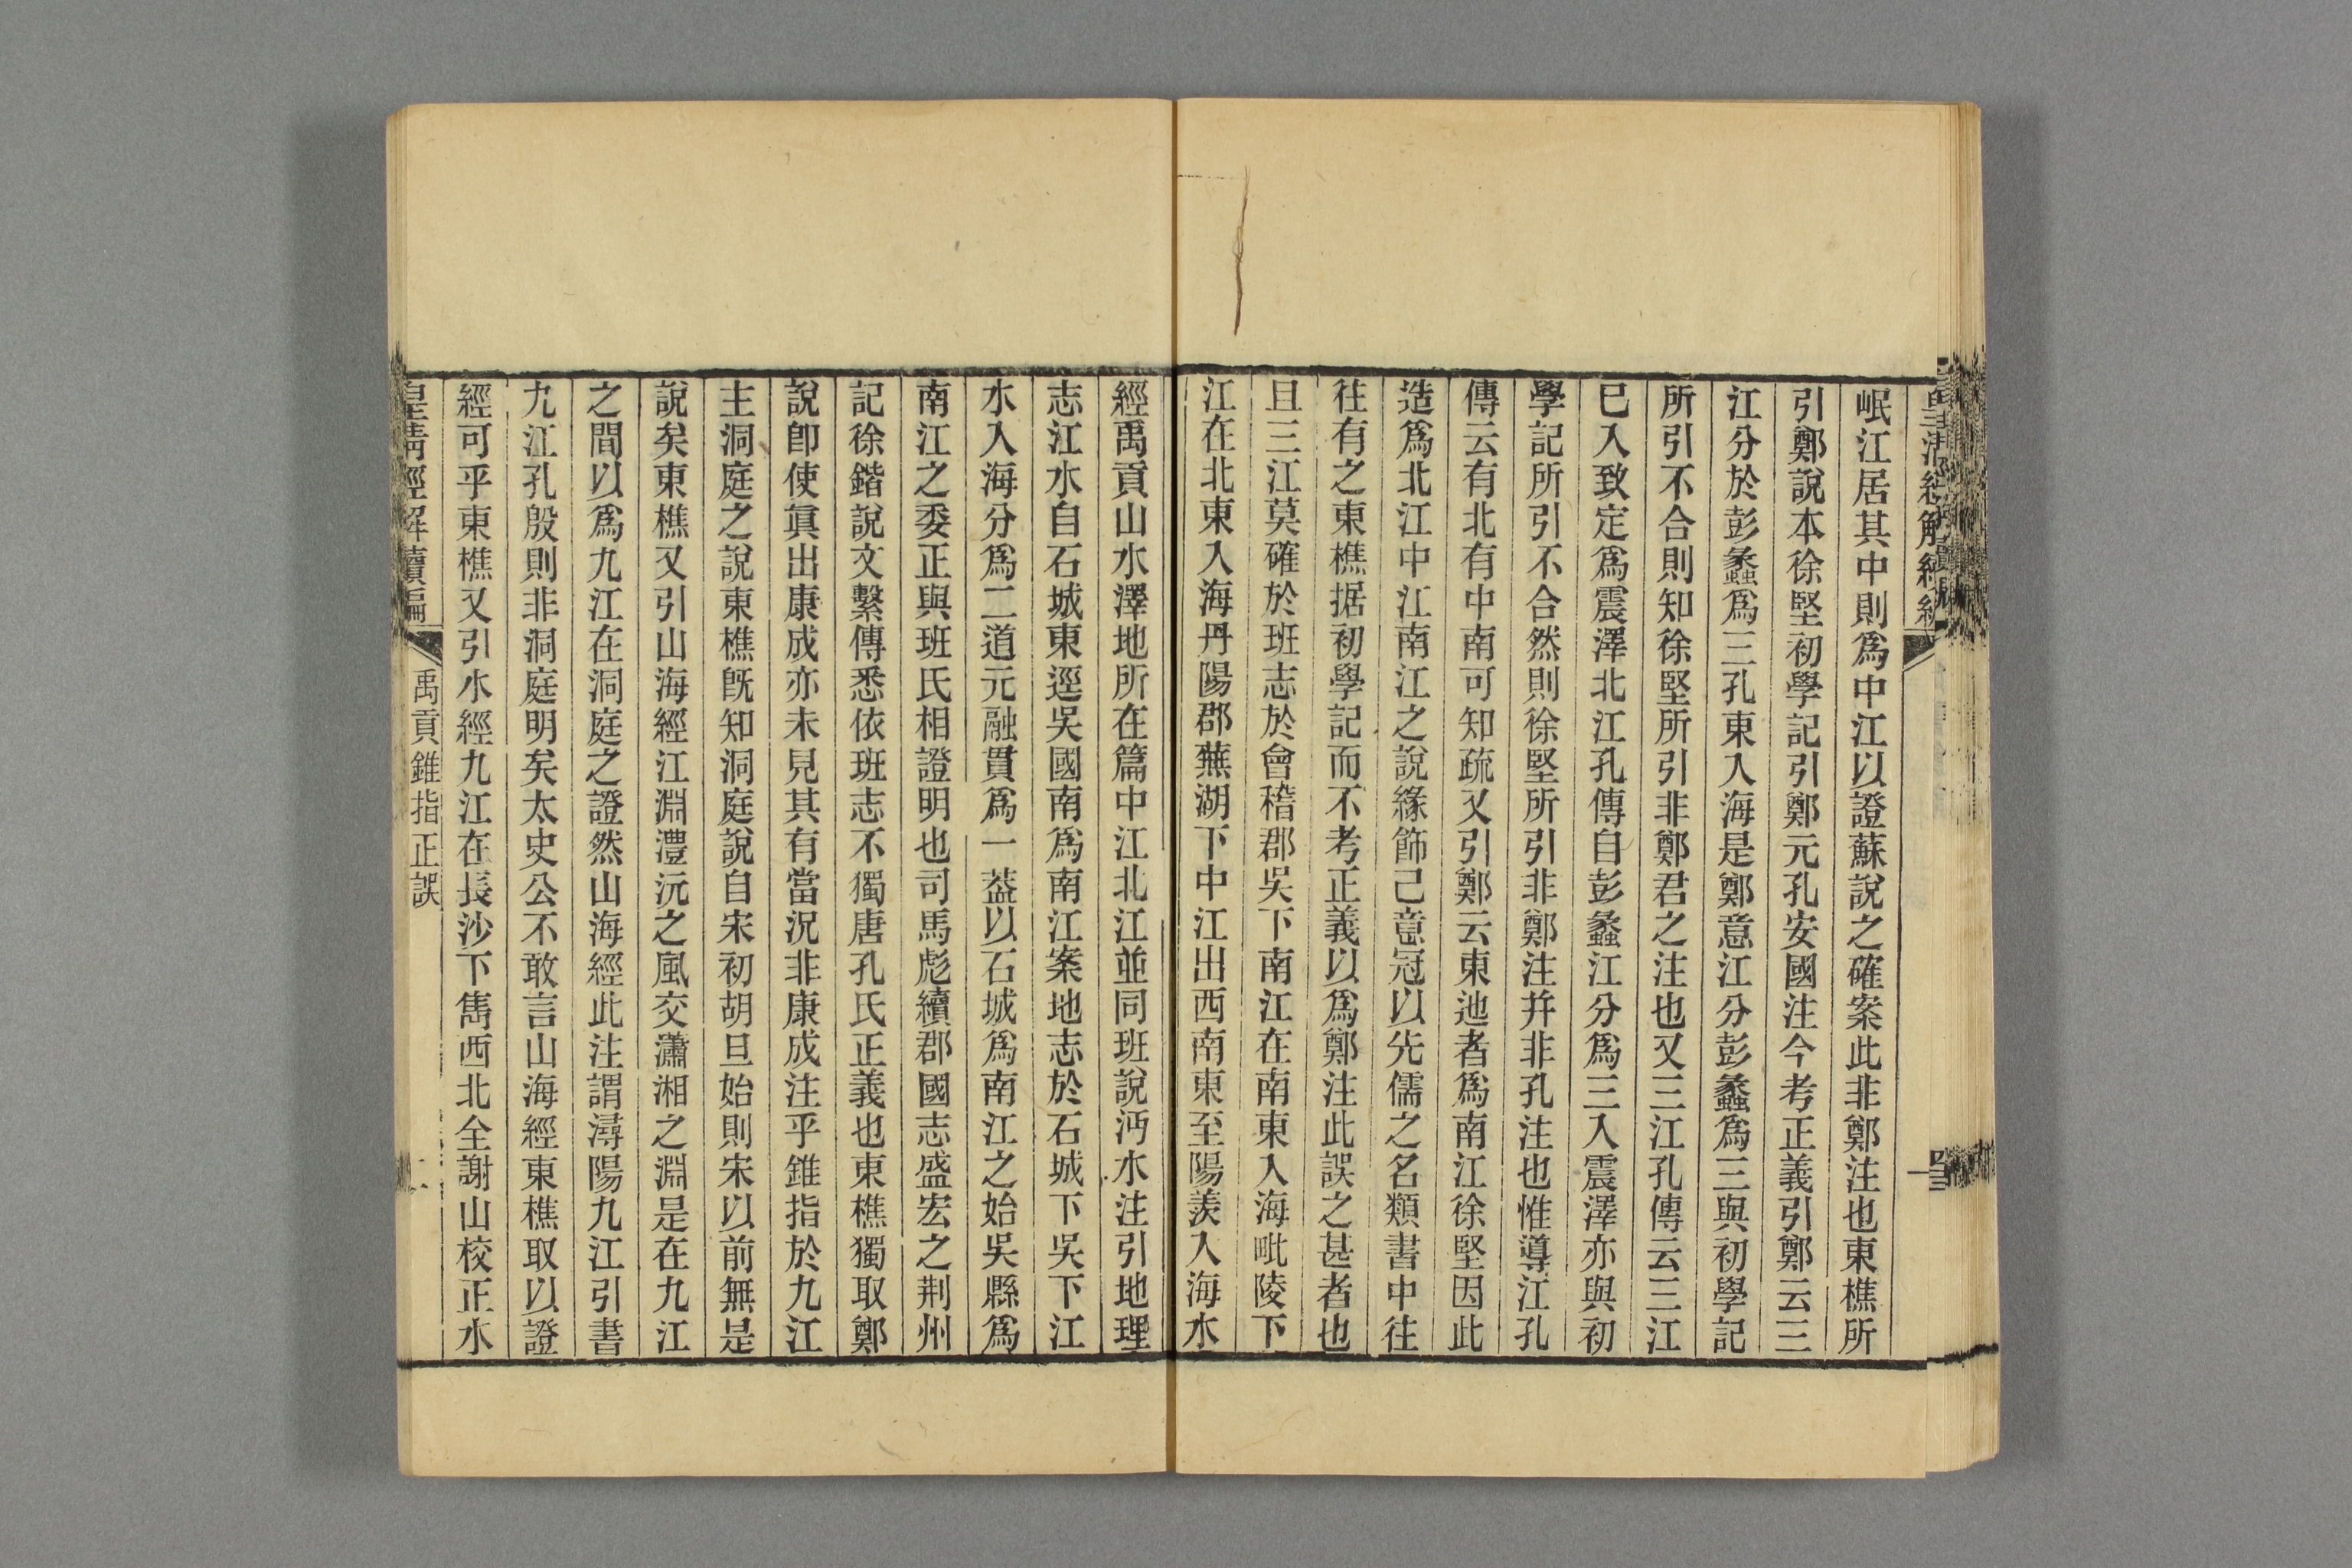 岷江居其中則爲中江以證蘇說之確案此非鄭注也東樵所
引鄭說本徐堅初學記引鄭元孔安國注今考正義引鄭云三
江分於彭蠡爲三孔東入海是鄭意江分彭蠡爲三與初學記
所引不合則知徐堅所引非鄭君之注也又三江孔傳云三江
巳入致定爲震澤北江孔傳自彭蠡江分爲三入震澤亦與初
學記所引不合然則徐堅所引非鄭注幷非孔注也惟導江孔
傳云有北有中南可知疏又引鄭云東迆者爲南江徐堅因此
造爲北江中江南江之說緣飾己意冠以先儒之名類書中往
往有之東樵据初學記而不考正義以爲鄭注此誤之甚者也
且三江莫確於班志於會稽郡吳下南江在南東入海毗陵下
江在北東入海丹陽郡蕪湖下中江出西南東至陽羨入海水
經禹貢山水澤地所在篇中江北江並同班說沔水注引地理
志江水自石城東逕吳國南爲南江案地志於石城下吳下江
水入海分爲二道元融貫爲一葢以石城爲南江之始吳縣爲
南江之委正與班氏相證明也司馬彪續郡國志盛宏之荆州
記徐鍇說文繫傳悉依班志不獨唐孔氏正義也東樵獨取鄭
說卽使眞出康成亦未見其有當況非康成注乎錐指於九江
主洞庭之說東樵旣知洞庭說自宋初胡旦始則宋以前無是
說矣東樵又引山海經江淵澧沅之風交瀟湘之淵是在九江
之間以爲九江在洞庭之證然山海經此注謂潯陽九江引書
九江孔殷則非洞庭明矣太史公不敢言山海經東樵取以證
經可乎東樵又引水經九江在長沙下雋西北全謝山校正水
皇淸經解續編
禹貢錐指正誤
二